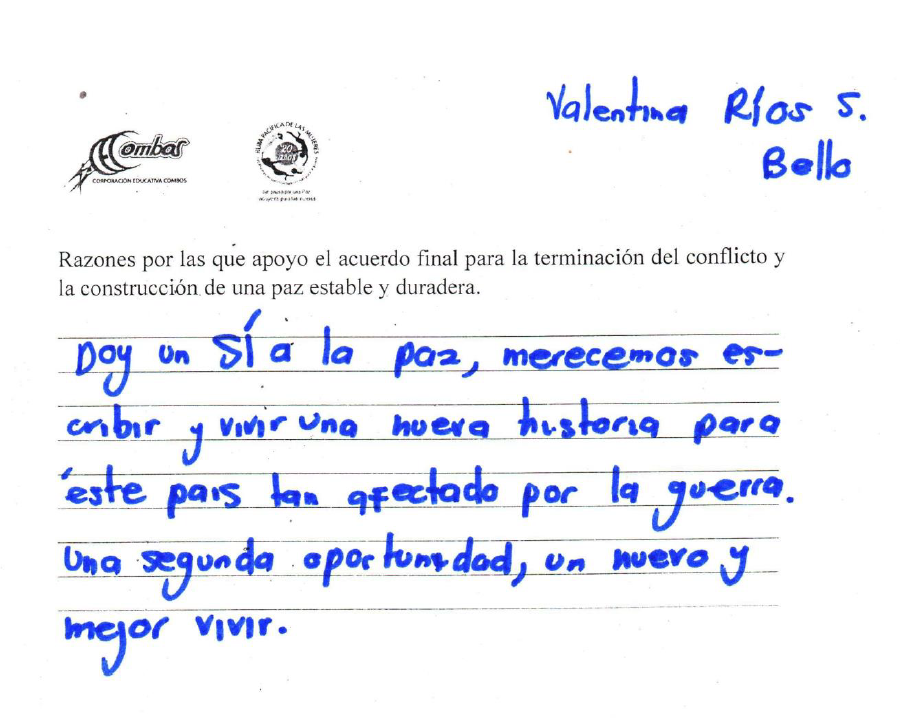 Valentina Ríos S.
Bello
Combos
CORPORACIÓN EDUCATIVA COMBOS
RUTA PACÍFICA DE LAS MUJERES
20 años
Razones por las que apoyo el acuerdo final para la terminación del conflicto y
la construcción de una paz estable y duradera.
Doy un SÍ a la paz, merecemos es-
cribir y vivir una nueva historia para
éste pais tan afectado por la guerra.
Una segunda oportunidad, un nuevo y
mejor vivir.